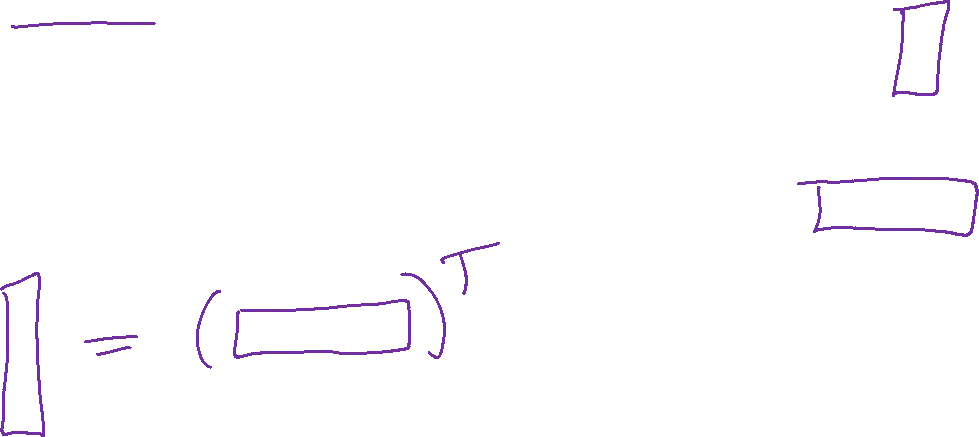 = ( )ᵀ